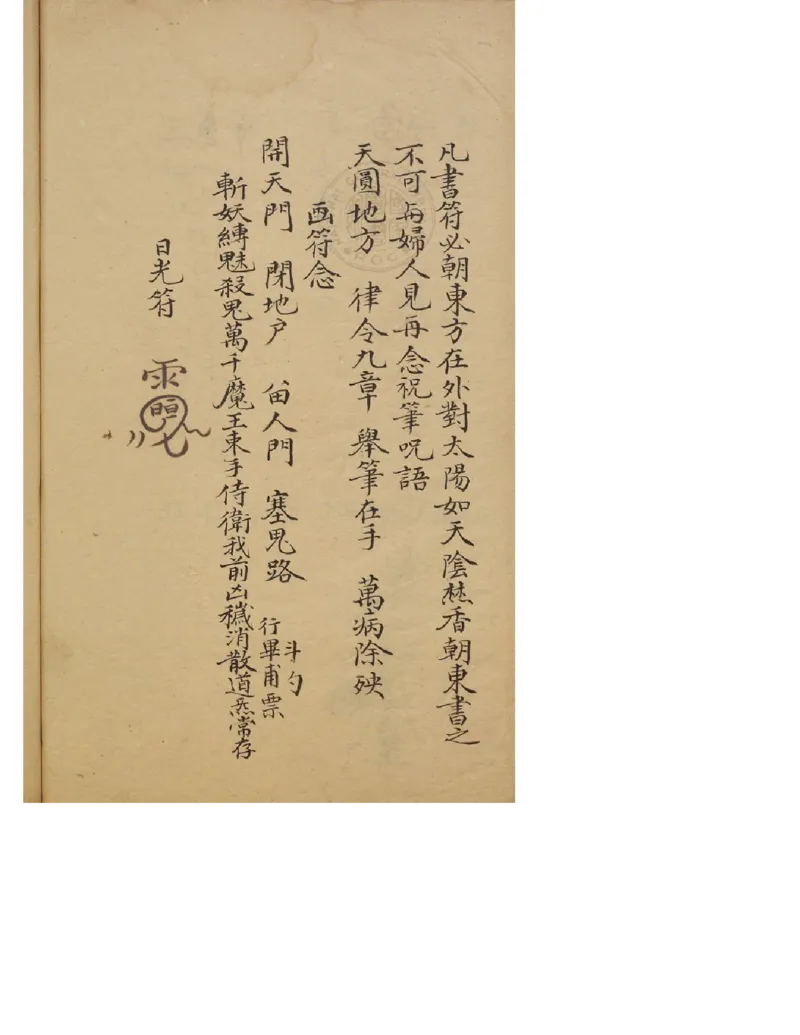 凡書符必朝東方在外對太陽如天陰焚香朝東書之
不可與婦人見再念祝筆咒語
天圓地方　律令九章　舉筆在手　萬病除殃
画符念
開天門　閉地户　留人門　塞鬼路　斗勺
行畢甫票
斬妖縛魅殺鬼萬千魔王束手侍衛我前凶穢消散道炁常存
日光符